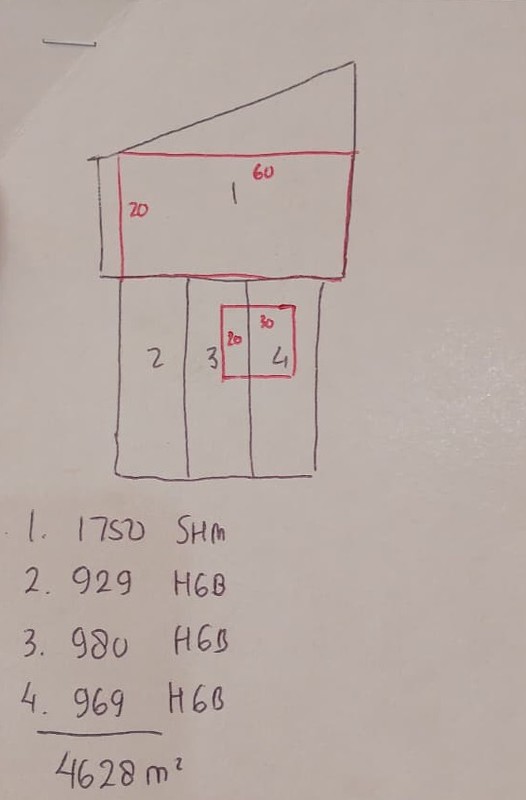 60
20
1
30
20
2
3
4
1. 1750 SHM
2. 929 HGB
3. 980 HGB
4. 969 HGB
4628 m²